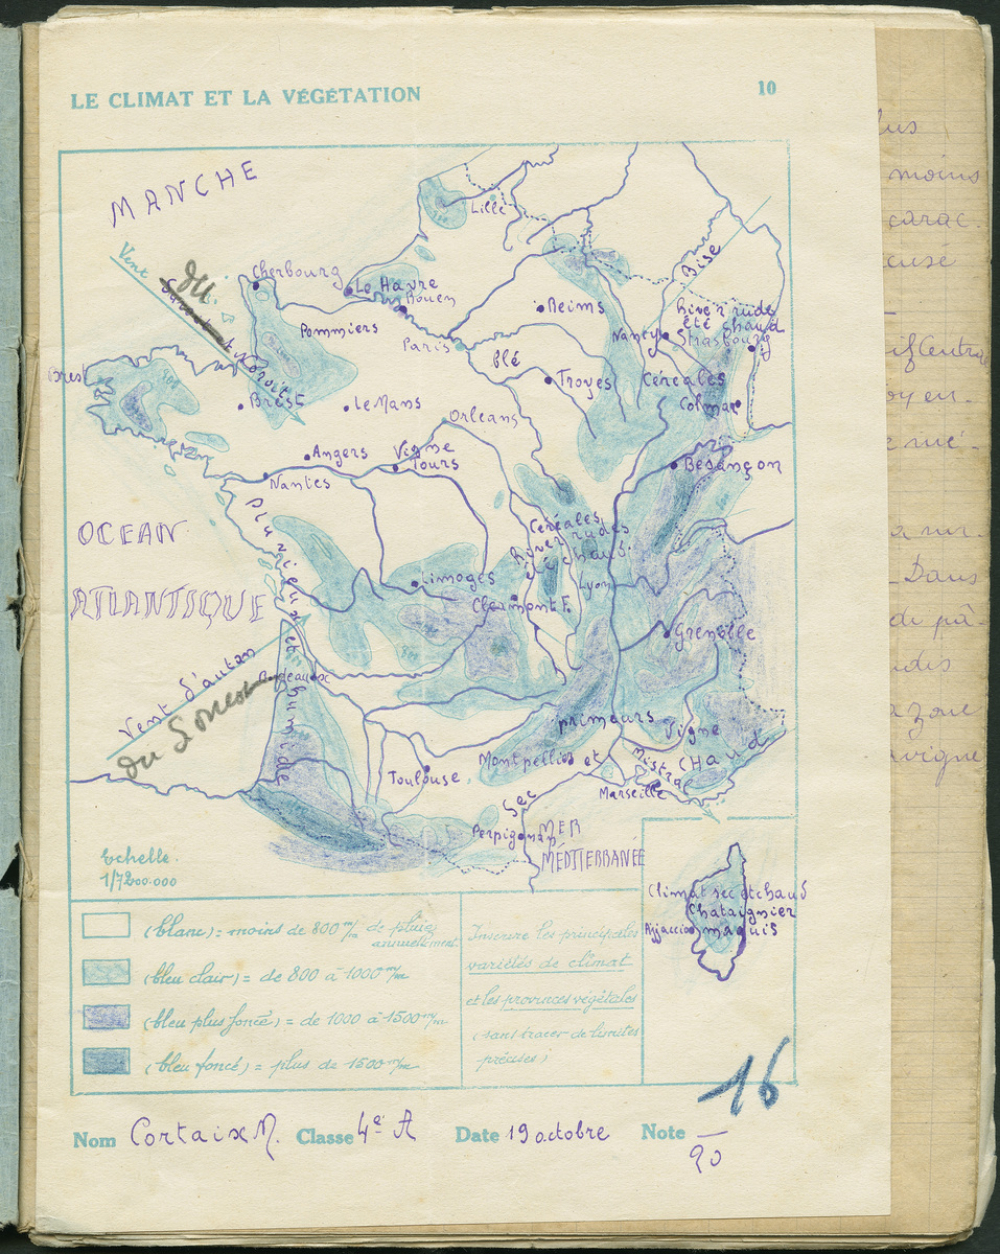 LE CLIMAT ET LA VÉGÉTATION
10
MANCHE
Lille
Vent
du
Noroit
Cherbourg
Le Havre
Rouen
Bise
Pommiers
Reims
hiver rude
été chaud
Paris
Nancy
Strasbourg
blé
Brest
Troyes
Céréales
Brest
Le Mans
Colmar
Orléans
Angers
Vigne
Tours
Besançon
Nantes
Pluvieux et humide
OCEAN
ATLANTIQUE
Céréales
hiver rudes
été chaud.
Limoges
Lyon
Clermont F.
Grenoble
Vent d'autan
du
Bordeaux
primeurs
Vigne
Montpellier et
Mistral
CHaud
Toulouse
Marseille
Sec
Perpignan
MER
MÉDITERRANÉE
Echelle.
1/7200.000
Climat sec et chaud
Chataignier
Ajjaccio maquis
(blanc) = moins de 800 m/m de pluie
annuellement
(bleu clair) = de 800 à 1000 m/m
(bleu plus foncé) = de 1000 à 1500 m/m
(bleu foncé) = plus de 1500 m/m
Inscrire les principales
variétés de climat
et les provinces végétales
(sans tracer de limites
précises)
16
Nom Cortaix M. Classe 4e A Date 19 octobre Note
20
lus
moins
carac.
cusé
if Centra
oy en.
Dans
de pâ-
ndis
vigne